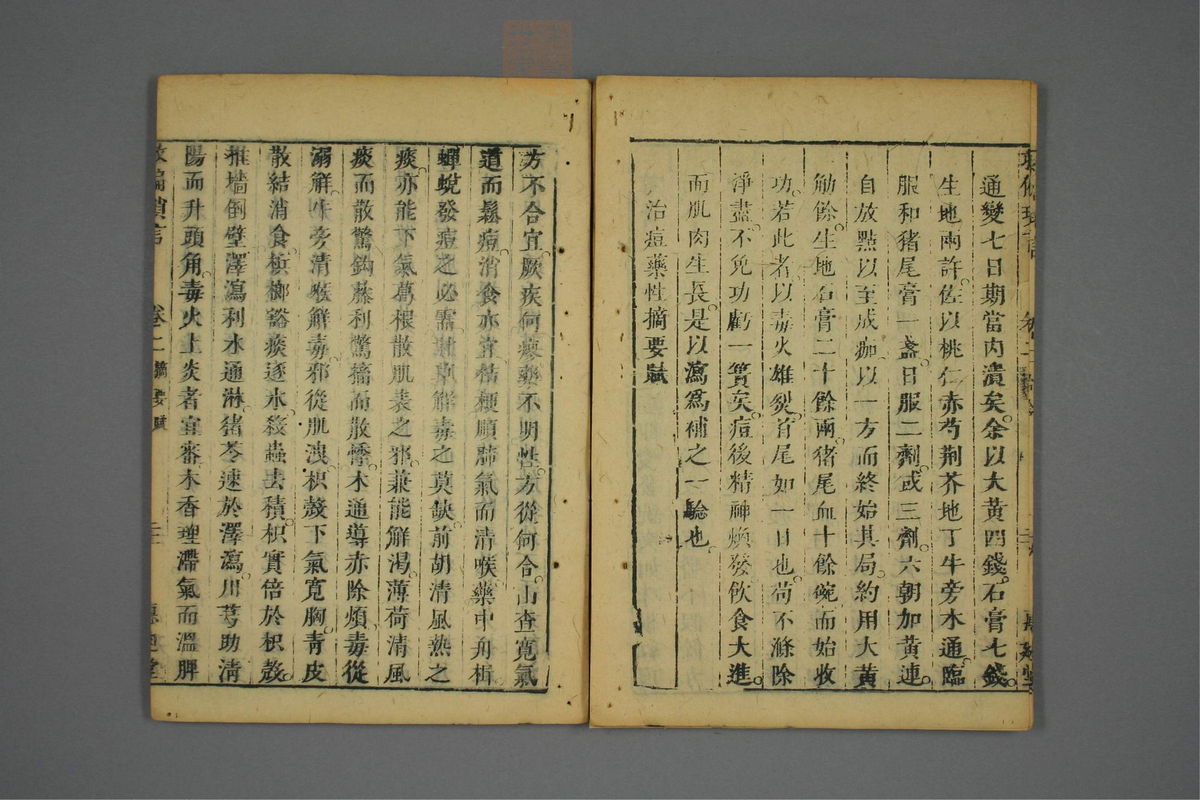 通變七日期當內潰矣余以大黃四錢石膏七錢
生地兩許佐以桃仁赤芍荆芥地丁牛旁木通臨
服和猪尾膏一盞日服二劑或三劑六朝加黃連
自放點以至成痂以一方而終始其局約用大黃
觔餘生地石膏二十餘兩猪尾血十餘碗而始收
功若此者以毒火雄烈首尾如一日也苟不滌除
淨盡不免功虧一簣矣痘後精神煥發飲食大進
而肌肉生長是以瀉爲補之一驗也
治痘藥性摘要賦
方不合宜厥疾何瘳藥不明性方從何合山查寬氣
道而鬆痘消食亦宜桔梗順肺氣而清喉藥中舟楫
蟬蛻發痘之必需解毒之莫缺前胡清風熱之
痰亦能下氣葛根散肌表之邪兼能解渴薄荷清風
痰而散驚鈎藤利驚搐而散熱木通導赤除煩毒從
溺解牛旁清喉解毒邪從肌洩枳殼下氣寬胸青皮
散結消食檳榔豁痰逐水殺蟲去積枳實倍於枳殼
推墻倒壁澤瀉利水通淋猪苓速於澤瀉川芎助清
陽而升頭角毒火上炎者宜審木香理滯氣而溫脾
卷二 摘要賦